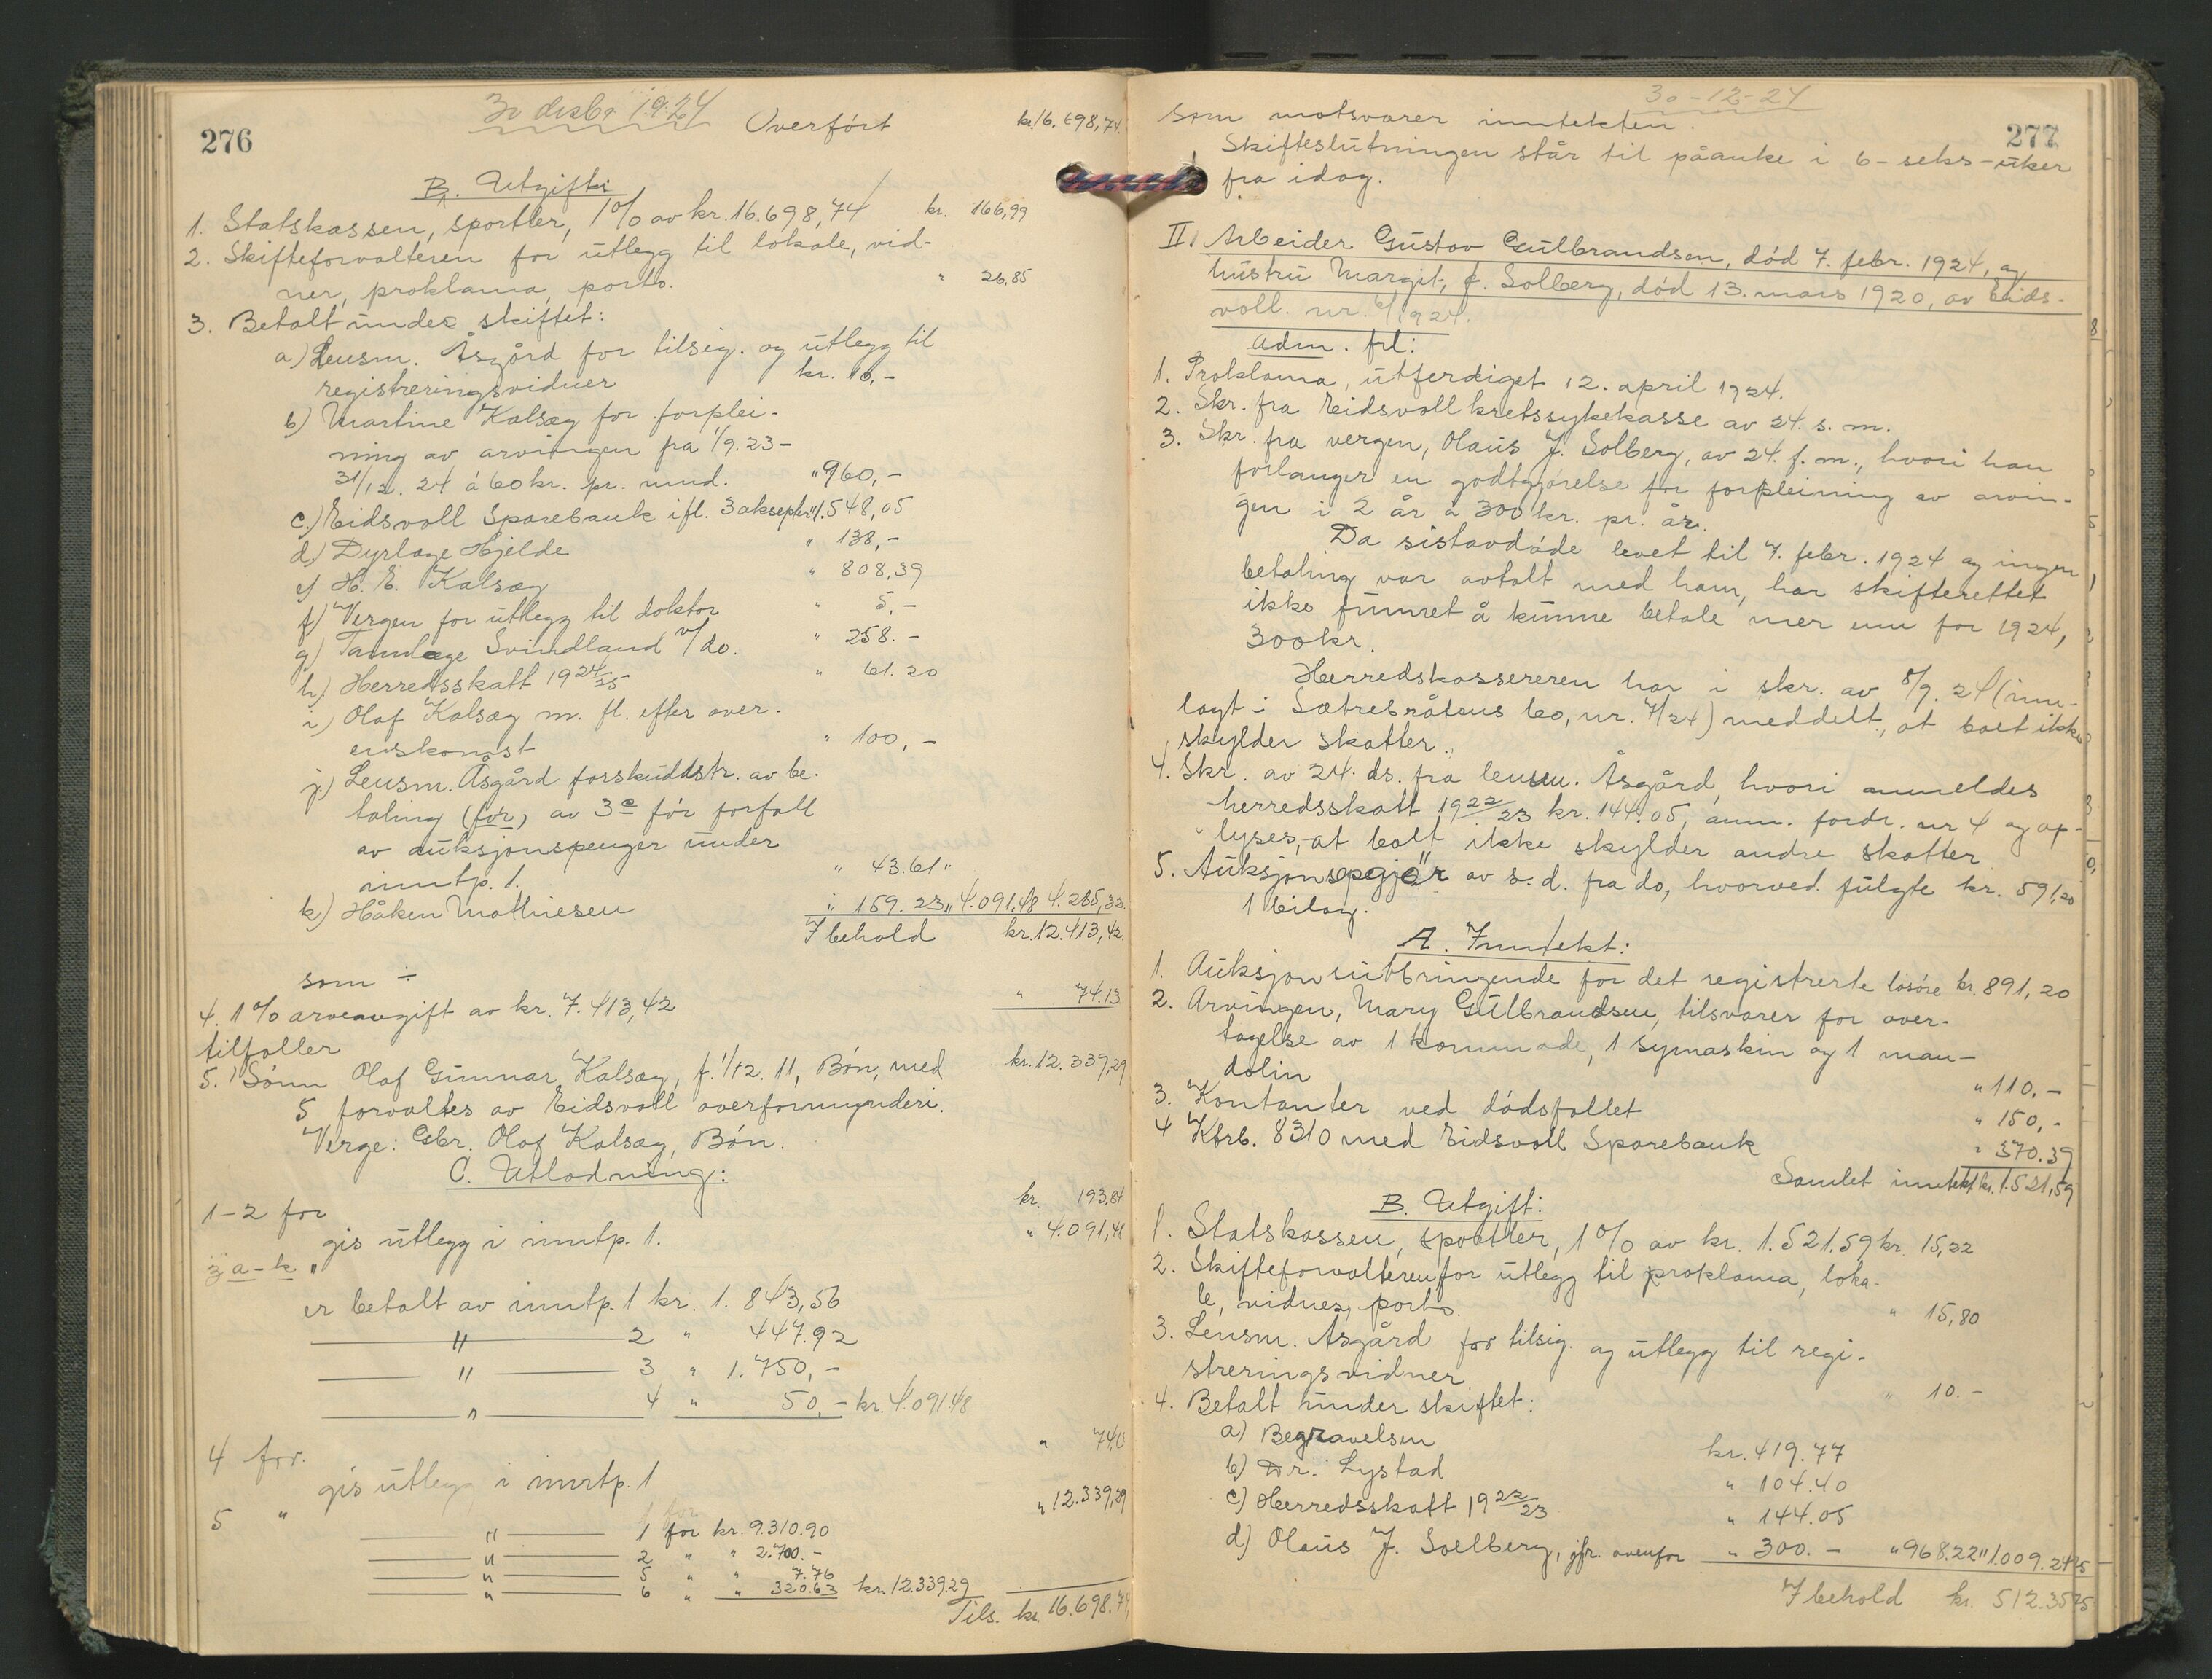 276
30 desbr 1924
Overført kr. 16.698,74
B. Utgift:
1. Statskassen, sportler, 1% av kr. 16.698,74 kr. 166,99
2. Skifteforvalteren for utlegg til lokale, vid-
ner, proklama, porto. " 26,85
3. Betalt under skiftet:
a) Lensm. Åsgård for tilsig. og utlegg til
registreringsvidner kr. 10,-
b) Martine Kalsæg for forplei-
ning av arvingen fra 1/9.23-
31/12. 24 á 60 kr. pr. mnd. " 960,-
c.) Eidsvoll Sparebank ifl. 3 aksepter " 1.548,05
d) Dyrlæge Hjelde " 138,-
e) H. E. Kalsæg " 808,39
f) Vergen for utlegg til doktor " 5,-
g) Tannlæge Svindland v/do. " 258.-
h) Herredsskatt 1924/25 " 61.20
i) Olaf Kalsæg m. fl. efter over-
enskomst " 100,-
j.) Lensm. Åsgård forskuddstr. av be-
taling (før) av 3e før forfall
av auksjonspenger under
inntp. 1. " 43.61 "
k) Håken Mathiesen " 159.23 " 4.091,48 4.285,32
I behold kr. 12.413,42
som ÷
4. 1% arveavgift av kr. 7.413,42 " 74.13
tilfaller
5. 1 Sønn Olaf Gunnar Kalsæg, f. 1/12. 11, Bøn, med kr. 12.339,29
5 forvaltes av Eidsvoll overformynderi.
Verge: Gbr. Olaf Kalsæg, Bøn.
C. Utlodning:
1-2 for kr. 193.84
gis utlegg i inntp. 1.
3 a-k " " 4.091,48
er betalt av inntp. 1 kr. 1.843,56
" 2 " 447.92
" 3 " 1.750,-
" 4 " 50,- kr. 4.091.48
4 for " 74.13
gis utlegg i inntp. 1
5 " " 12.339,29
" 1 for kr. 9.310.90
" 2 " " 2.700.-
" 5 " " 7.76
" 6 " " 320.63 kr. 12.339.29
Tils. kr. 16.698.74
277
30-12-24
som motsvarer inntekten.
Skifteslutningen står til påanke i 6-seks-uker
fra idag.
II. Arbeider Gustav Gulbrandsen, død 7. febr. 1924, og
hustru Margit, f. Solberg, død 13. mars 1920, av Eids-
voll. nr. 6/1924.
Adm. frl:
1. Proklama, utferdiget 12. april 1924.
2. Skr. fra Eidsvoll kretssykekasse av 24. s. m.
3. Skr. fra vergen, Olaus J. Solberg, av 24. f. m., hvori han
forlanger en godtgjørelse for forpleining av arvin-
gen i 2 år a 300 kr. pr. år.
Da sistavdøde levet til 7. febr. 1924 og ingen
betaling var avtalt med ham, har skifterettet
ikke funnet å kunne betale mer enn for 1924,
300 kr.
Herredskassereren har i skr. av 8/9. 24 (inn-
lagt i Sætrebråtens bo, nr. 7/24) meddelt, at boet ikke
skylder skatter.
4. Skr. av 24. ds. fra lensm. Åsgård, hvori anmeldes
herredsskatt 1922/23 kr. 144.05, anm. fordr. nr 4 og op-
lyses, at boet ikke skylder andre skatter
5. Auksjonsopgjør av s. d. fra do, hvorved fulgte kr. 591,20
1 bilag.
A. Inntekt:
1. Auksjonsutbringende for det registrerte løsøre kr. 891,20
2. Arvingen, Mary Gulbrandsen, tilsvarer for over-
tagelse av 1 kommode, 1 symaskin og 1 man-
dolin " 110,-
3. Kontanter ved dødsfallet " 150,-
4 Ktrb. 8310 med Eidsvoll Sparebank " 370.39
Samlet inntekt kr. 1.521,59
B. Utgift:
1. Statskassen, sportler, 1% av kr. 1.521.59 kr. 15,22
2. Skifteforvalteren for utlegg til proklama, loka-
le, vidner, porto. " 15,80
3. Lensm. Åsgård for tilsig. og utlegg til regi-
streringsvidner " 10.-
4. Betalt under skiftet:
a) Begravelsen kr. 419.77
b) Dr. Lystad " 104.40
c) Herredsskatt 1922/23 " 144.05
d) Olaus J. Solberg, jfr. ovenfor " 300.- " 968.22 " 1.009.24
I behold kr. 512.35